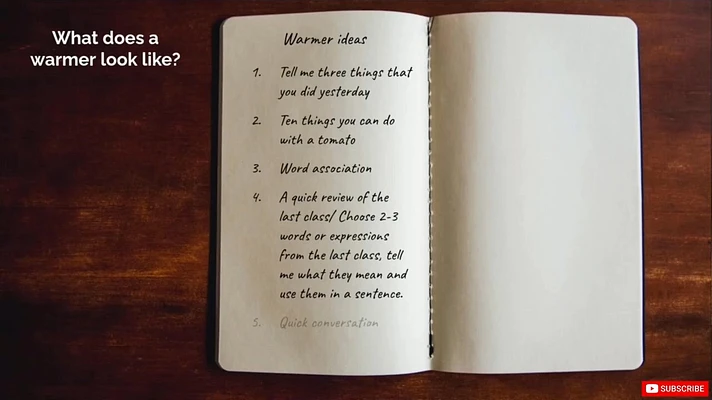 What does a
warmer look like?
Warmer ideas
1. Tell me three things that
you did yesterday
2. Ten things you can do
with a tomato
3. Word association
4. A quick review of the
last class/ Choose 2-3
words or expressions
from the last class, tell
me what they mean and
use them in a sentence.
5. Quick conversation
SUBSCRIBE